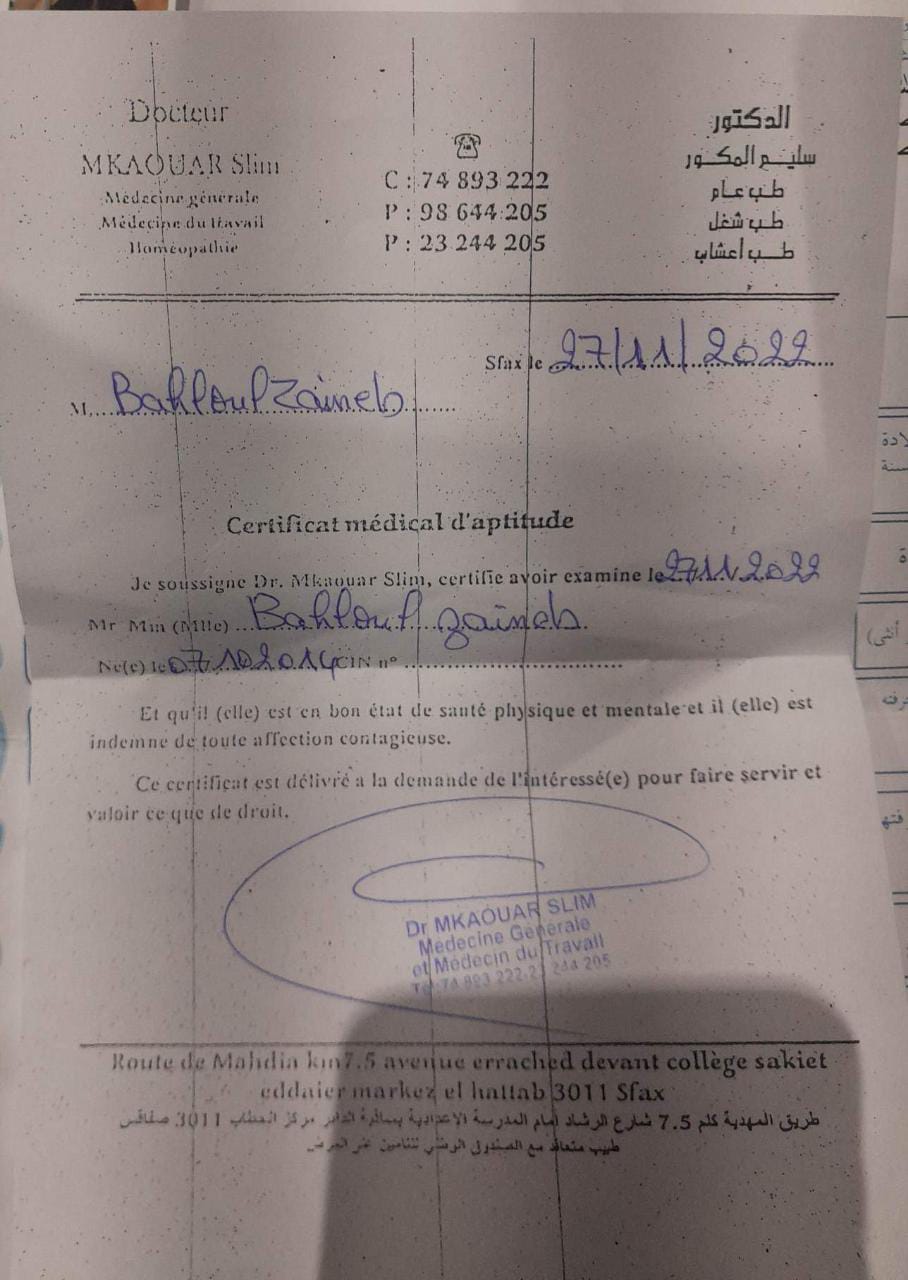 Docteur
MKAOUAR Slim
Médecine générale
Médecine du travail
Homéopathie
C : 74 893 222
P : 98 644 205
P : 23 244 205
الدكتور
سليم المكور
طب عام
طب شغل
طب أعشاب
Sfax le 27/11/2022
M. Bahloul Zaineb
Certificat médical d'aptitude
Je soussigne Dr. Mkaouar Slim, certifie avoir examine le 27.11.2022
Mr Mm (Mlle) Bahloul Zaineb
Ne(e) le 07.10.2014 CIN n°
Et qu'il (elle) est en bon état de santé physique et mentale et il (elle) est
indemne de toute affection contagieuse.
Ce certificat est délivré a la demande de l'intéressé(e) pour faire servir et
valoir ce que de droit.
Dr MKAOUAR SLIM
Médecine Générale
et Médecin du Travail
Tel: 74 893 222-23 244 205
Route de Mahdia km7.5 avenue errached devant collège sakiet
eddaier markez el hattab 3011 Sfax
طريق المهدية كلم 7.5 شارع الرشاد أمام المدرسة الاعدادية بساقية الداير مركز الحطاب 3011 صفاقس
طبيب متعاقد مع الصندوق الوطني للتأمين على المرض
لادة
أنثى)